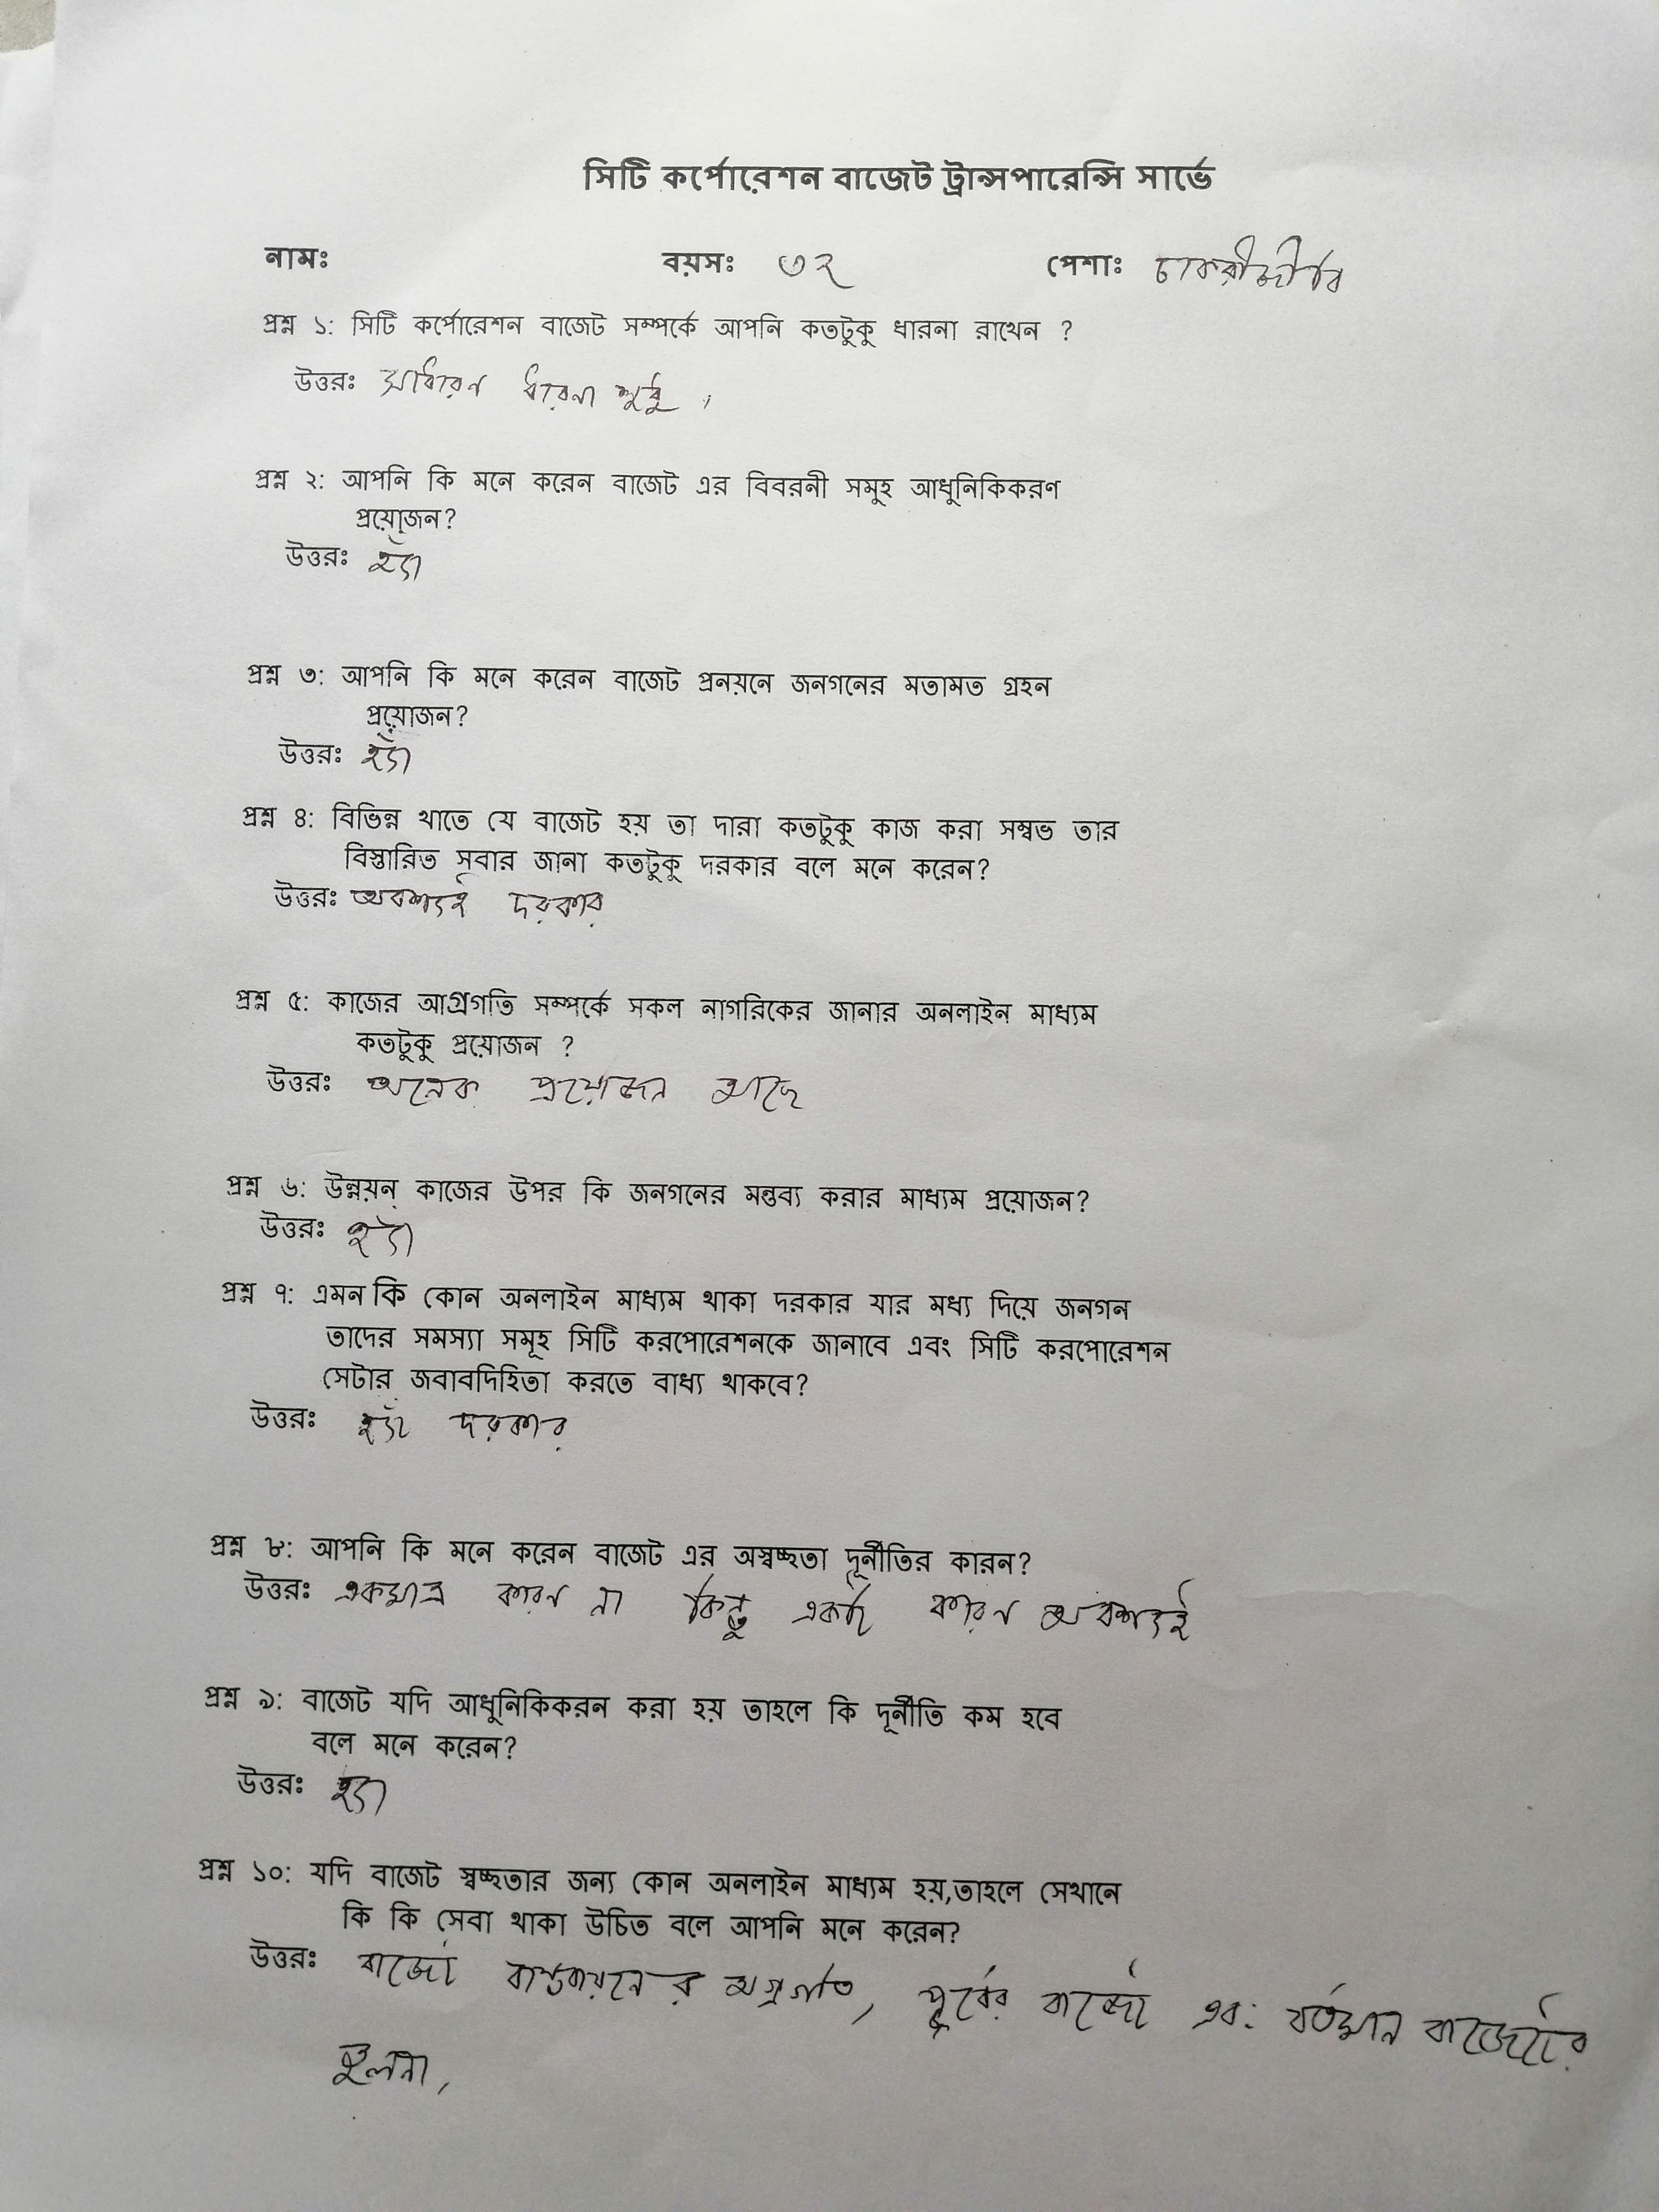 সিটি কর্পোরেশন বাজেট ট্রান্সপারেন্সি সার্ভে
নামঃ বয়সঃ ৩২ পেশাঃ চাকরীজীবি
প্রশ্ন ১: সিটি কর্পোরেশন বাজেট সম্পর্কে আপনি কতটুকু ধারনা রাখেন ?
উত্তরঃ সাধারন ধারনা শুধু ।
প্রশ্ন ২: আপনি কি মনে করেন বাজেট এর বিবরনী সমুহ আধুনিকিকরণ
প্রয়োজন?
উত্তরঃ হ্যাঁ
প্রশ্ন ৩: আপনি কি মনে করেন বাজেট প্রনয়নে জনগনের মতামত গ্রহন
প্রয়োজন?
উত্তরঃ হ্যাঁ
প্রশ্ন ৪: বিভিন্ন খাতে যে বাজেট হয় তা দারা কতটুকু কাজ করা সম্বভ তার
বিস্তারিত সবার জানা কতটুকু দরকার বলে মনে করেন?
উত্তরঃ অবশ্যই দরকার
প্রশ্ন ৫: কাজের আগ্রগতি সম্পর্কে সকল নাগরিকের জানার অনলাইন মাধ্যম
কতটুকু প্রয়োজন ?
উত্তরঃ অনেক প্রয়োজন আছে
প্রশ্ন ৬: উন্নয়ন কাজের উপর কি জনগনের মন্তব্য করার মাধ্যম প্রয়োজন?
উত্তরঃ হ্যাঁ
প্রশ্ন ৭: এমন কি কোন অনলাইন মাধ্যম থাকা দরকার যার মধ্য দিয়ে জনগন
তাদের সমস্যা সমূহ সিটি করপোরেশনকে জানাবে এবং সিটি করপোরেশন
সেটার জবাবদিহিতা করতে বাধ্য থাকবে?
উত্তরঃ হ্যাঁ দরকার
প্রশ্ন ৮: আপনি কি মনে করেন বাজেট এর অস্বচ্ছতা দূর্নীতির কারন?
উত্তরঃ একমাত্র কারন না কিন্তু একটি কারন অবশ্যই
প্রশ্ন ৯: বাজেট যদি আধুনিকিকরন করা হয় তাহলে কি দূর্নীতি কম হবে
বলে মনে করেন?
উত্তরঃ হ্যা
প্রশ্ন ১০: যদি বাজেট স্বচ্ছতার জন্য কোন অনলাইন মাধ্যম হয়,তাহলে সেখানে
কি কি সেবা থাকা উচিত বলে আপনি মনে করেন?
উত্তরঃ বাজেট বাস্তবায়নের অগ্রগতি, পূর্বের বাজেট এবং বর্তমান বাজেটের
তুলনা,